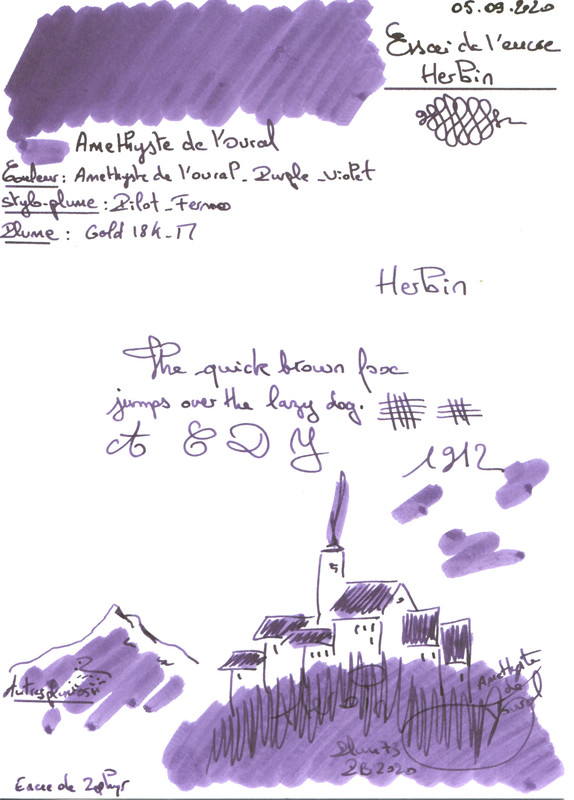 05.09.2020
Essai de l'encre
Herbin
Amethyste de l'Oural
Couleur : Amethyste de l'oural - Purple - Violet
stylo-plume : Pilot - Fermo
Plume : Gold 18k - M
Herbin
The quick brown fox
jumps over the lazy dog.
A E D Y
1912
Amethyste
de
l'oural
Plume73
2B2020
Encre de Zephyr